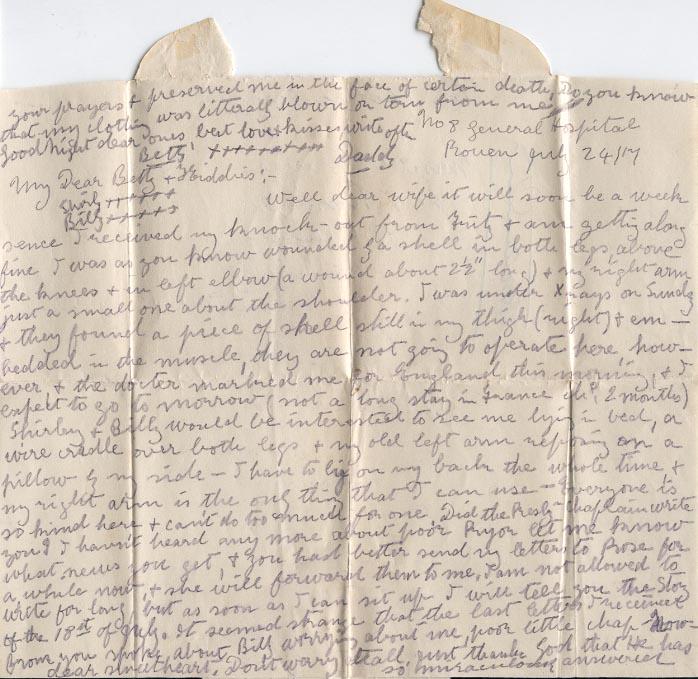 your prayers & preserved me in the face of certain death, Do you know
that my clothing was litterally blown or torn from me
Good night dear ones best love & kisses write often
Betty x x x x x x x x x Daddy
No 8 General Hospital
Rouen July 24/17
My Dear Betty & Kiddies:-
Shirly x x x x x x
Billy x x x x x x
Well dear wife it will soon be a week
sence I received my knock-out from Fritz & am getting along
fine I was as you know wounded by a shell in both legs above
the knees & in left elbow (a wound about 2½" long) & my right arm
just a small one about the shoulder. I was under X rays on Sundy
& they found a piece of shell still in my thigh (right) & em-
bedded in the muscle, they are not going to operate here how-
ever & the docter marked me for England this morning, & I
expect to go to morrow (not a long stay in France eh? 2 months)
Shirley & Billy would be interested to see me lying in bed, a
wire cradle over both legs & my old left arm reposing on a
pillow by my side - I have to lie on my back the whole time &
my right arm is the only thing that I can use - Everyone is
so kind here & can't do too much for one Did the Presby- chaplain write
you? I havn't heard any more about poor Pryor let me know
what news you get, & you had better send my letters to Rose for
a while now, & she will forward them to me, I am not allowed to
write for long, but as soon as I can sit up I will tell you the Story
of the 18th of July. It seemed strange that the last letters I received
from you spoke about Billy worrying about me, poor little chap Now-
dear sweetheart, Don't worry attall, just thank God that He has
so miraculously answered